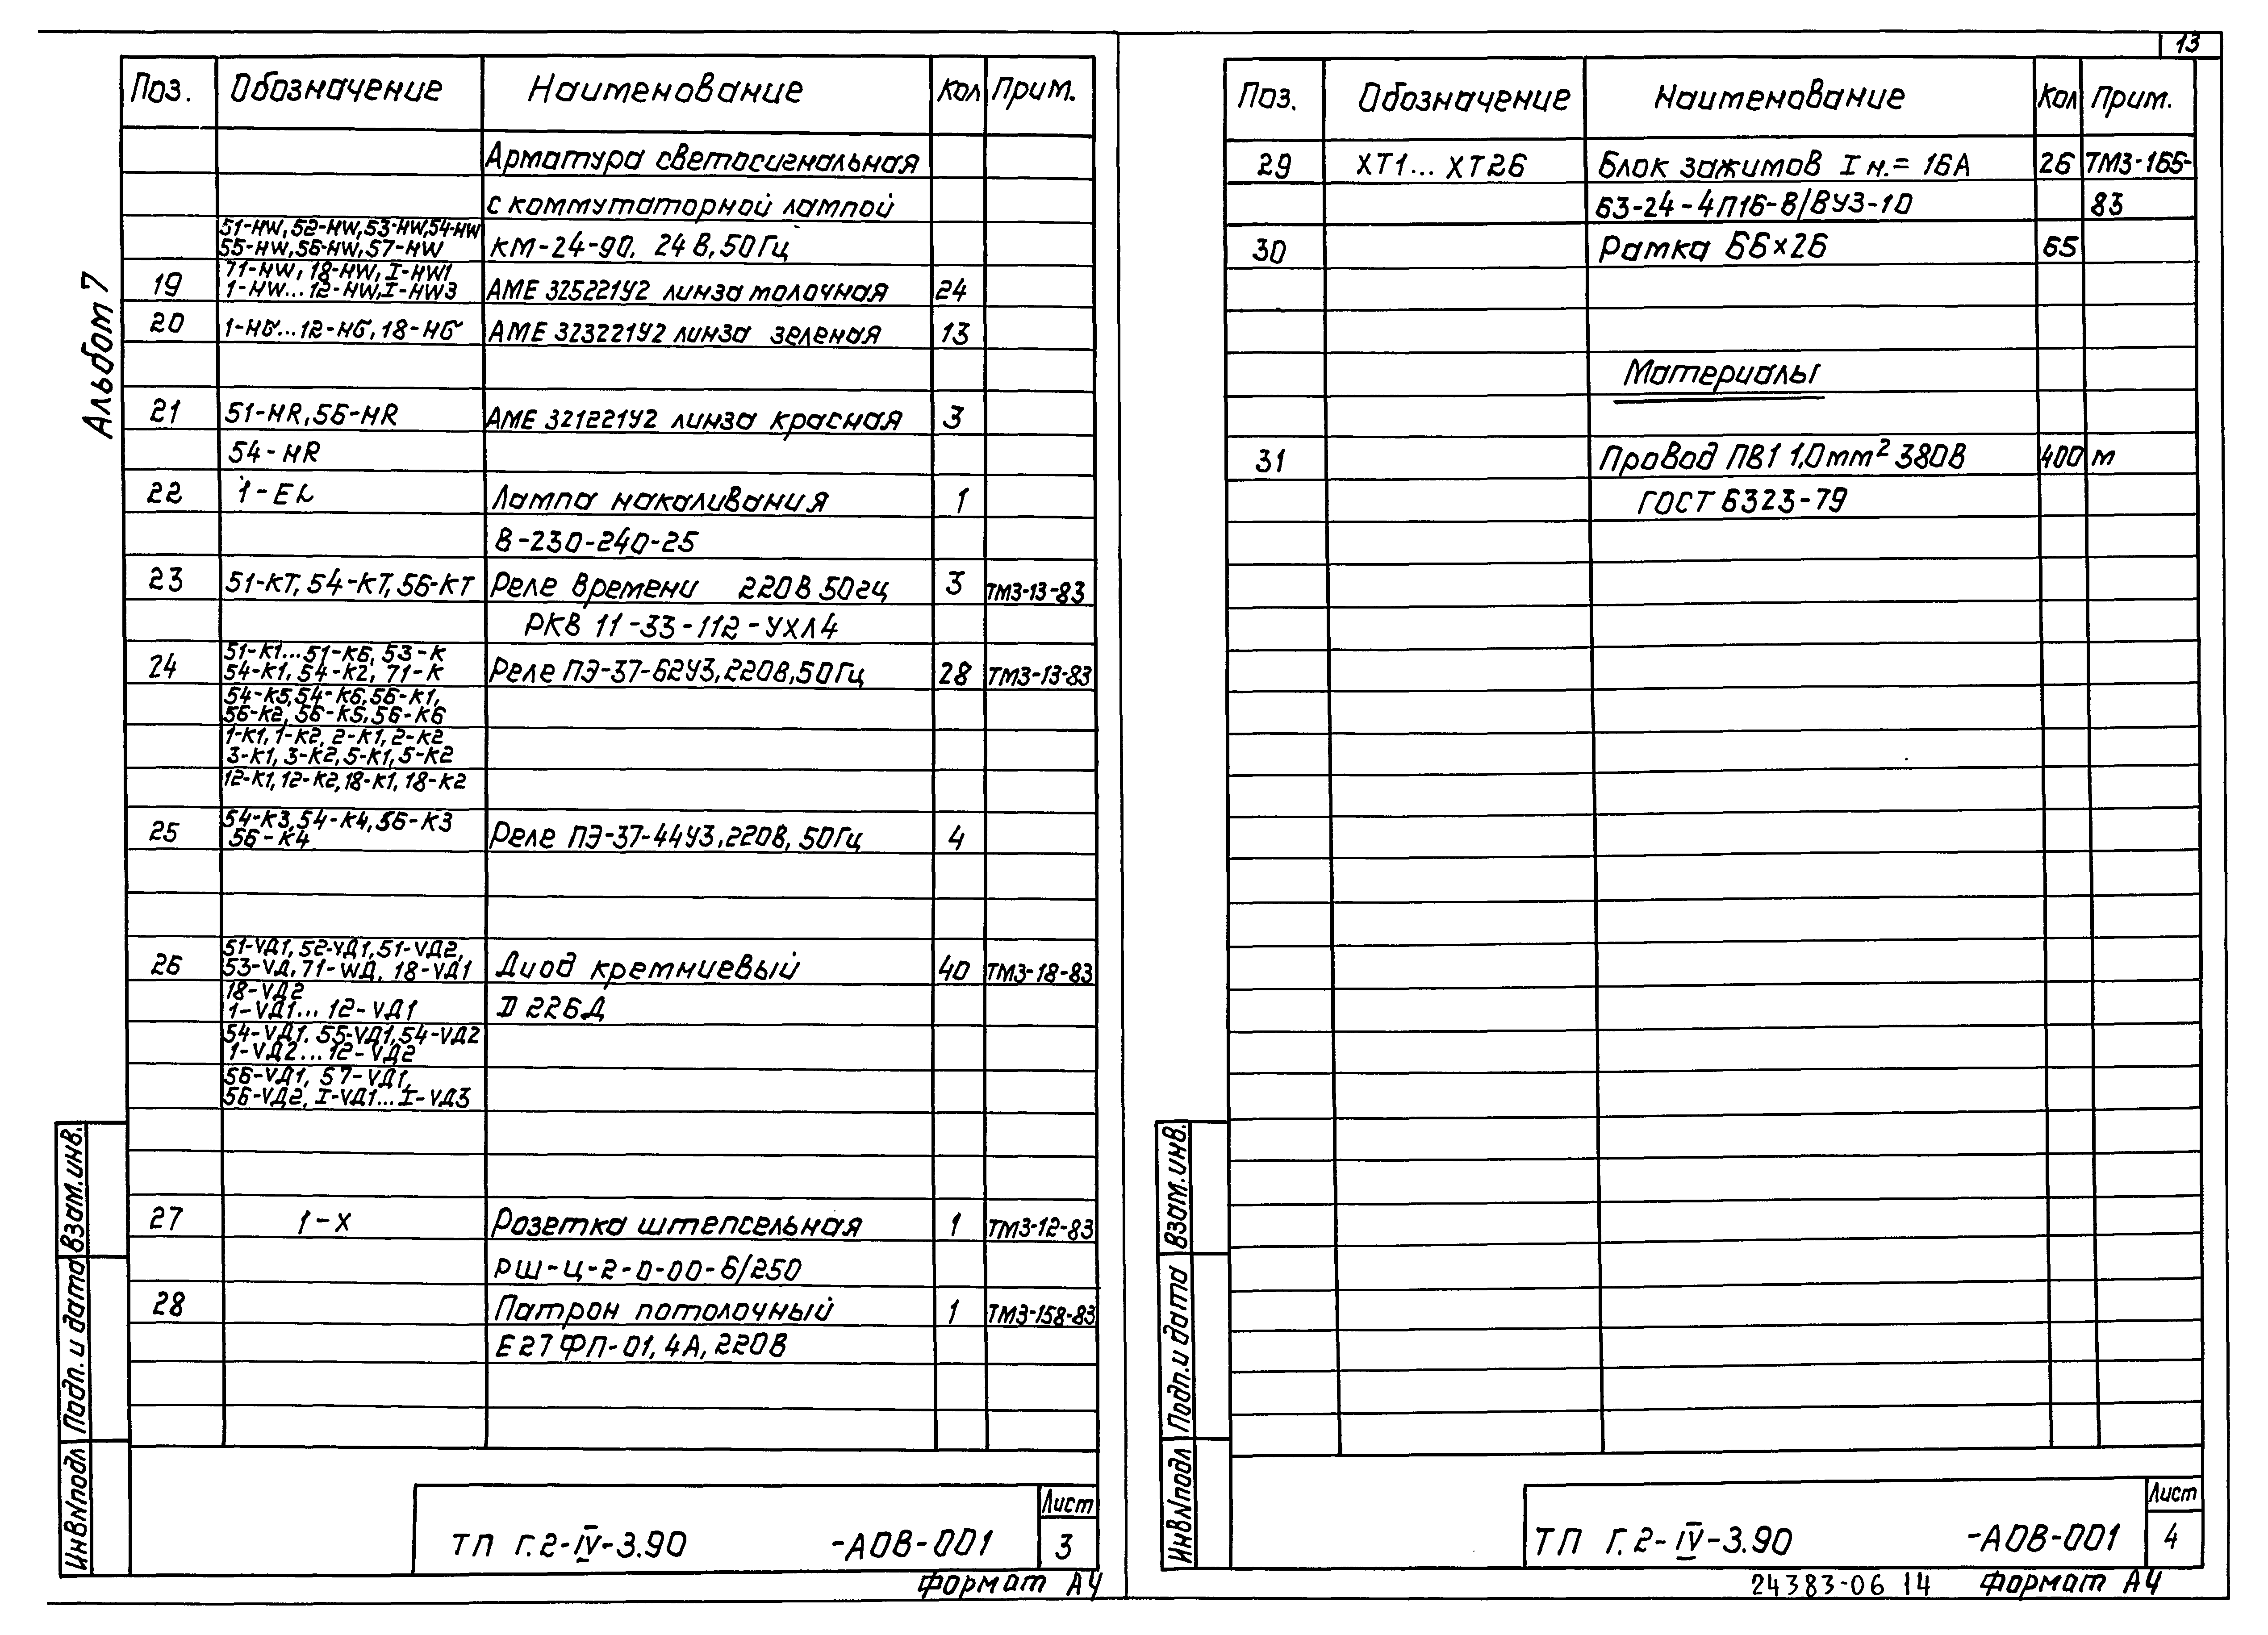 13
Альбом 7
Поз. Обозначение Наименование Кол Прим.
Арматура светосигнальная
с коммутаторной лампой
51-HW, 52-HW, 53-HW, 54-HW
55-HW, 56-HW, 57-HW КМ-24-90, 24В, 50Гц
71-HW, 18-HW, I-HW1
19 1-HW...12-HW, I-HW3 АМЕ 325221У2 линза молочная 24
20 1-HG...12-HG, 18-HG АМЕ 323221У2 линза зеленая 13
21 51-HR, 56-HR АМЕ 321221У2 линза красная 3
54-HR
22 1-EL Лампа накаливания 1
В-230-240-25
23 51-КТ, 54-КТ, 56-КТ Реле времени 220В 50гц 3 ТМ3-13-83
РКВ 11-33-112-УХЛ4
51-К1...51-К6, 53-К
24 54-К1, 54-К2, 71-К Реле ПЭ-37-62У3, 220В, 50Гц 28 ТМ3-13-83
54-К5, 54-К6, 56-К1,
56-К2, 56-К5, 56-К6
1-К1, 1-К2, 2-К1, 2-К2
3-К1, 3-К2, 5-К1, 5-К2
12-К1, 12-К2, 18-К1, 18-К2
54-К3, 54-К4, 56-К3
25 56-К4 Реле ПЭ-37-44У3, 220В, 50Гц 4
51-VД1, 52-VД1, 51-VД2,
26 53-VД, 71-WД, 18-VД1 Диод кремниевый 40 ТМ3-18-83
18-VД2
1-VД1... 12-VД1 D 226Д
54-VД1. 55-VД1, 54-VД2
1-VД2...12-VД2
56-VД1, 57-VД1,
56-VД2, I-VД1...I-VД3
27 1-X Розетка штепсельная 1 ТМ3-12-83
РШ-Ц-2-0-00-6/250
28 Патрон потолочный 1 ТМ3-158-83
Е27 ФП-01, 4А, 220В
Взам.инв.
Подп. и дата
Инв№подл
ТП Г.2-IV-3.90 -АОВ-001
Лист
3
Формат А4
Поз. Обозначение Наименование Кол Прим.
29 ХТ1... ХТ26 Блок зажимов Iн.= 16А 26 ТМ3-165-
Б3-24-4П16-В/ВУ3-10 83
30 Рамка 66х26 65
Материалы
31 Провод ПВ1 1,0мм² 380В 400 м
ГОСТ 6323-79
Взам.инв.
Подп. и дата
Инв№подл
ТП Г.2-IV-3.90 -АОВ-001
Лист
4
24383-06 14 Формат А4